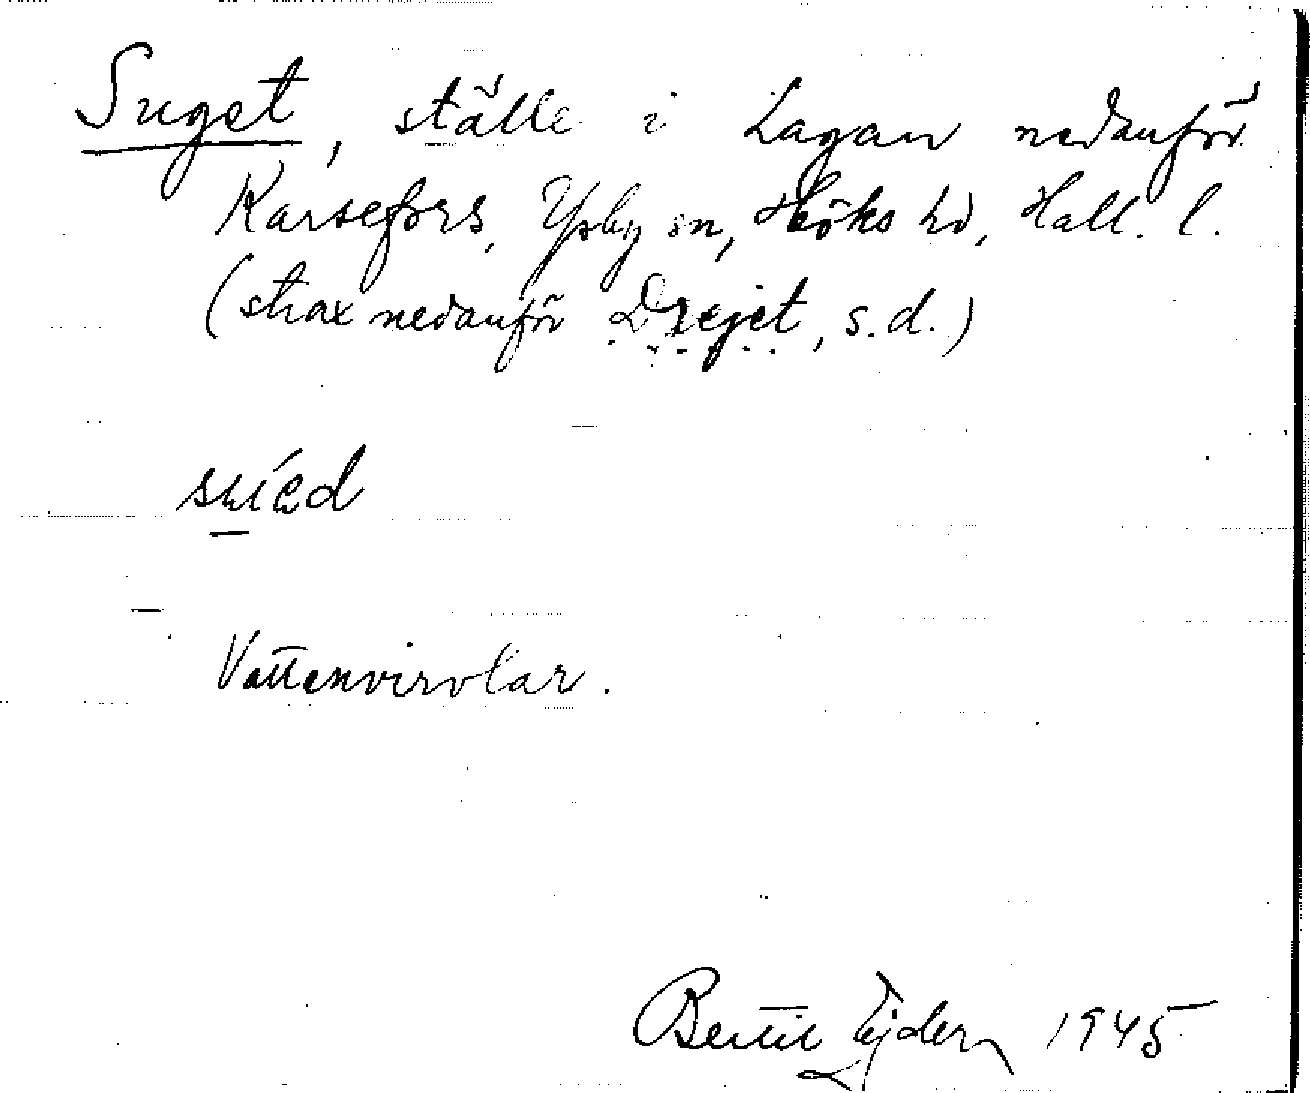 Suget, ställe i Lagan nedanför
Karsefors, Ysby sn, Höks hd, Hall. l.
(strax nedanför Drejet, s.d.)
Vattenvirvlar.
Bertil Ejder 1945